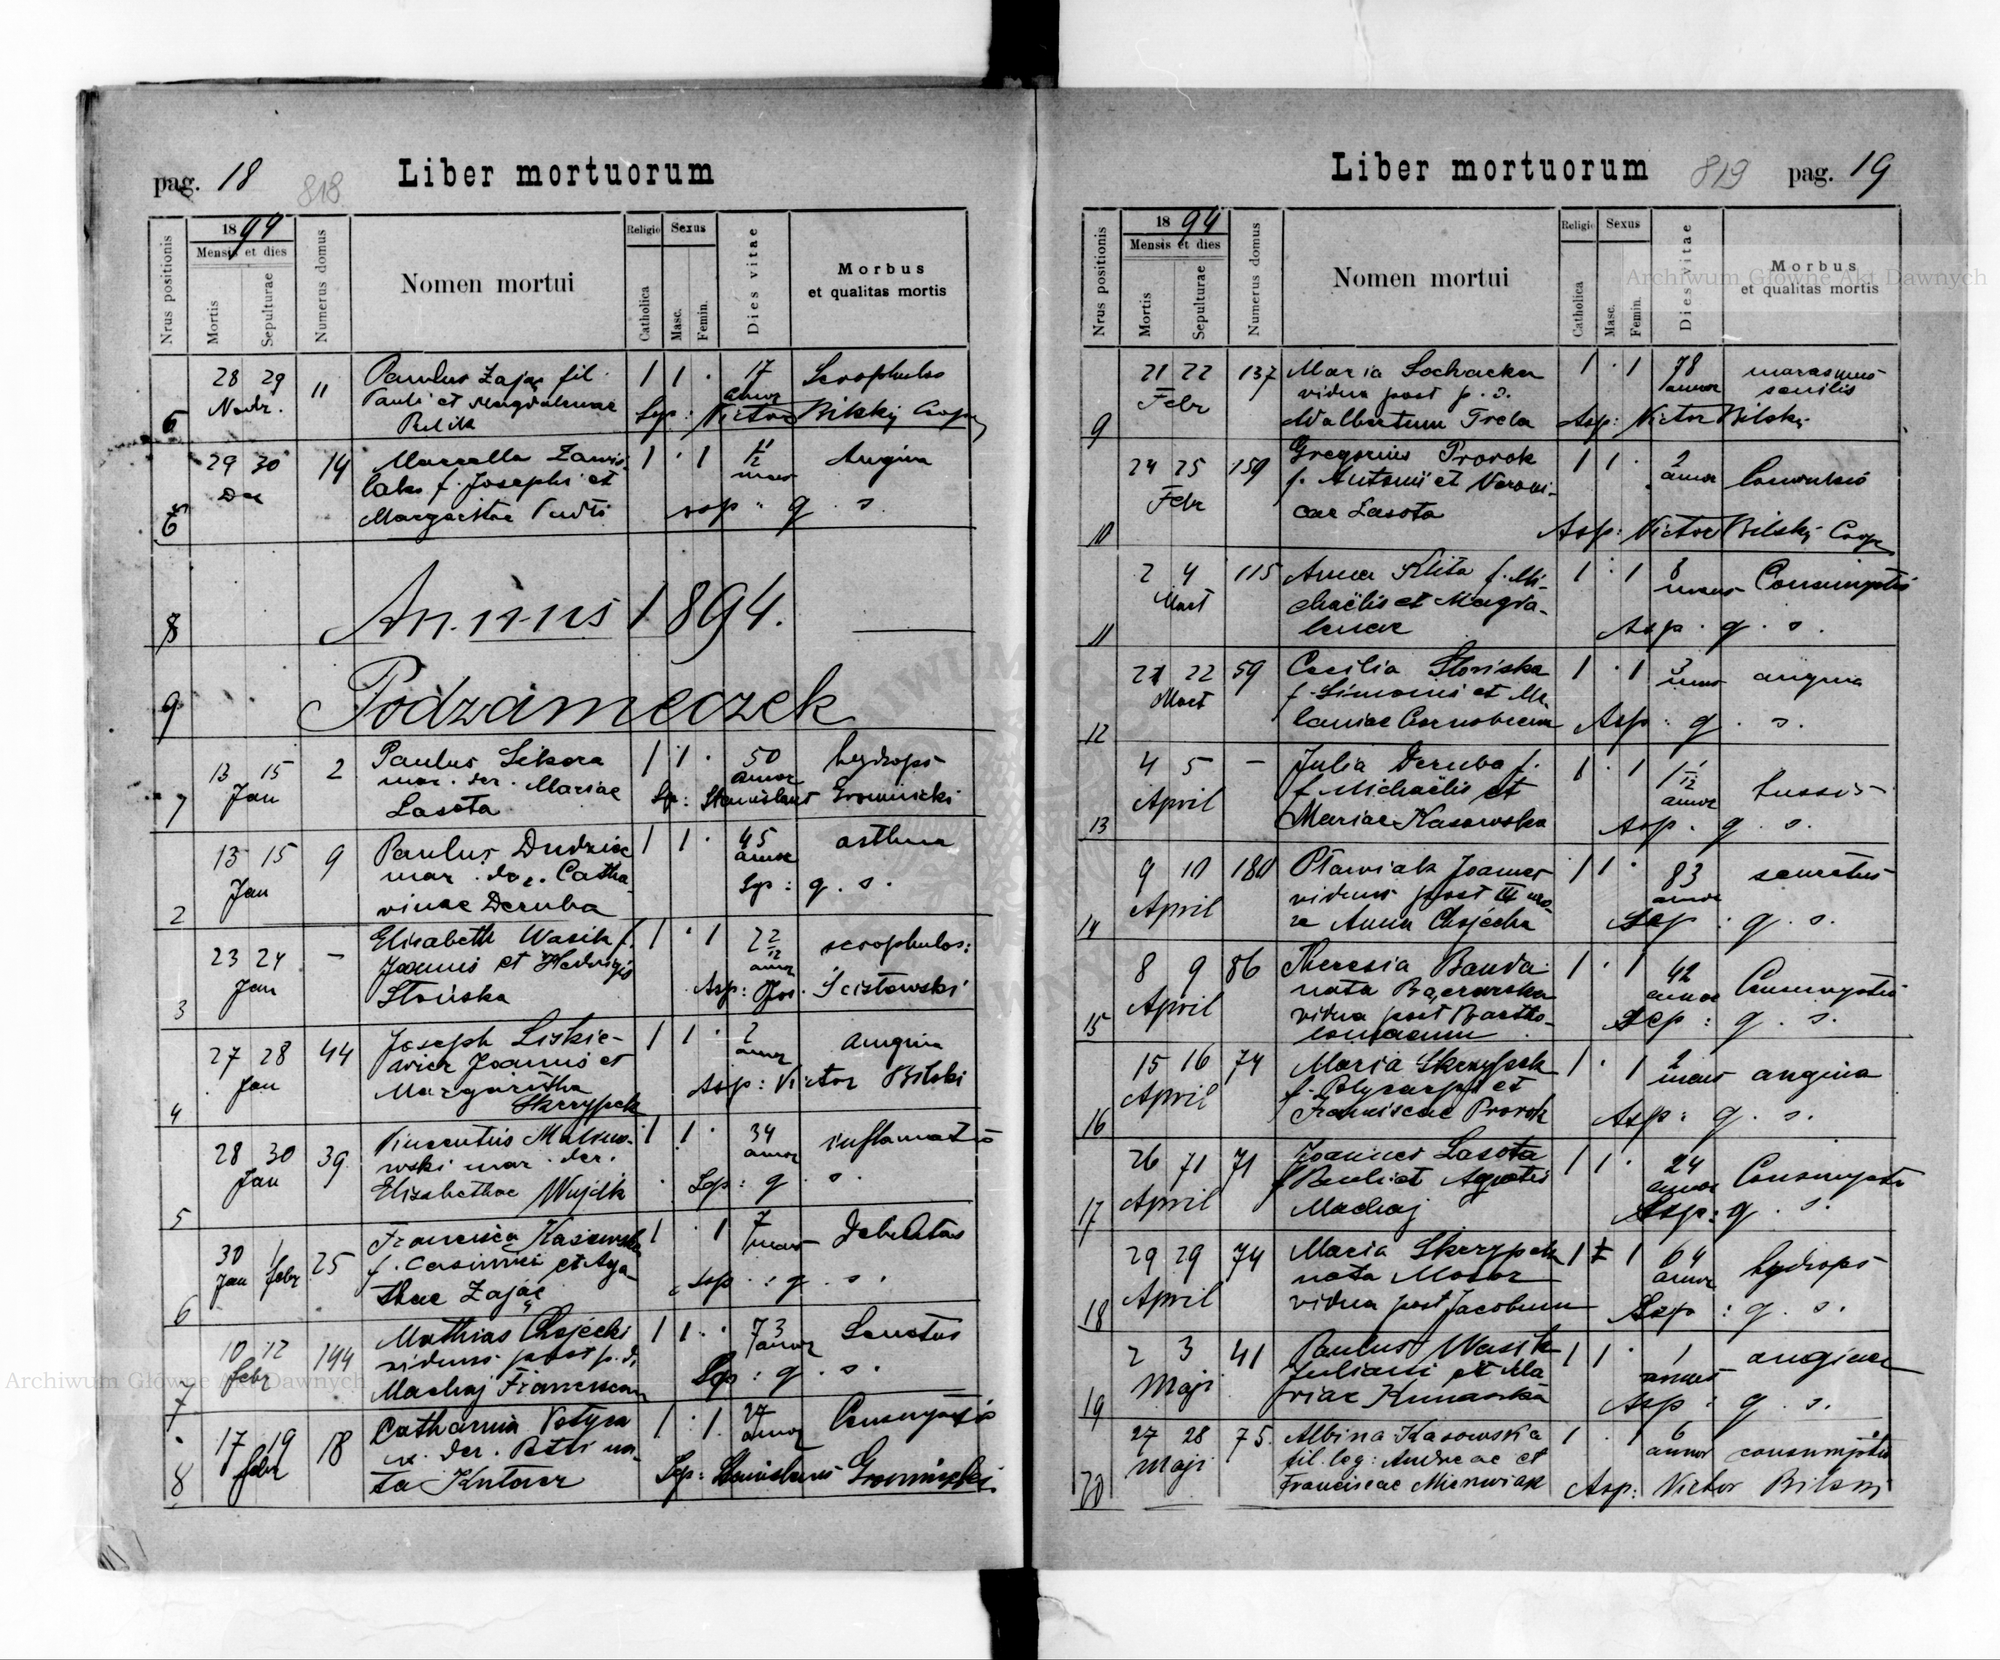 pag. 18
818
Liber mortuorum
Nrus positionis
1894
Mensis et dies
Mortis
Sepulturae
Numerus domus
Nomen mortui
Religio
Catholica
Sexus
Masc.
Femin.
Dies vitae
Morbus
et qualitas mortis
5 28 29 11 Paulus Zając fil 1 1 · 17 Scrophulos
Novbr. Pauli et Magdalenae annor
Sep: Victor Bilskij Coop
6 29 30 14 Marcella Zawis 1 · 1 mens Angina
Dec laka f. Josephi et
Margaritae q. s.
8 Annus 1894.
9 Podzameczek
1 13 15 2 Paulus Sikora 1 1 · 50 hydrops
Jan mar. der. Mariae annor
Lasota Sp: Stanislaus Gromnicki
2 13 15 9 Paulus Dudziak 1 1 · 45 asthma
Jan mar. der. Catha annor
rinae Deruba Sep: q. s.
3 23 24 – Elisabeth Wasik f. 1 · 1 2 2/12 scrophulos:
Jan Joannis et Hedvigis annor
Słońska Asp: Jos. Scisłowski
4 27 28 44 Joseph Liskie- 1 1 · 2 angina
Jan wicz Joannis et annor
Margaritha Asp: Victor Bilski
Skrzypek
5 28 30 39 Vincentius Malino- 1 1 · 34 inflamatio
Jan wski mar. der. annor
Elizabethae Wujdk Sep: q. s.
6 30 1 25 Francisca Kasowska 1 · 1 7 Debilitas
Jan febr f. Casimiri et Aga mens
thae Zając Asp: q. s.
7 10 12 194 Mathias Chojecki 1 1 · 73 Senetus
febr viduus post p. d. annor
Machaj Franciscam Sep: q. s.
8 17 19 18 Catharina 1 · 1 27 Consumptio
febr der. Petri na annor
ta Sep: Stanislaus Gromnicki
Liber mortuorum
819
pag. 19
Nrus positionis
1894
Mensis et dies
Mortis
Sepulturae
Numerus domus
Nomen mortui
Religio
Catholica
Sexus
Masc.
Femin.
Dies vitae
Morbus
et qualitas mortis
9 21 22 137 Maria Sochacka 1 · 1 78 marasmus
Febr vidua post p. d. annor senilis
Adalbertum Trela Asp: Victor Bilskij
10 24 25 159 Gregorius Prorok 1 1 · 2
Febr f. Antonii et Veroni- annor
cae Lasota
Asp: Victor Bilskij Coop
11 2 4 115 Anna Klita f. Mi- 1 · 1 8 Consumptio
Mart chaëlis et Magda- mens
lenae Asp. q. s.
12 21 22 59 Caecilia Słońska 1 · 1 3 angina
Mart f. Simonis et Me- mens
laniae Asp: q. s.
13 4 5 – Julia Deruba f. 1 · 1 1 1/12 tussis
April f. Michaëlis et annor
Mariae Kasowska Asp. q. s.
14 9 10 180 Joannes 1 1 · 83 senectus
April viduus post III uxo- annor
re Anna Chojecka Sep: q. s.
15 8 9 86 Theresia Banda 1 · 1 42 Consumptio
April nata annor
vidua post Bartho- Sep: q. s.
lomaeum
16 15 16 74 Maria Skrzypek 1 · 1 2 angina
April f. Polycarpi et mens
Franciscae Prorok Asp: q. s.
17 26 71 71 Joannes Lasota 1 1 · 24 Consumptio
April f. Pauli et Agnetis annor
Machaj Asp: q. s.
18 29 29 74 Maria Skrzypek 1 1 64 hydrops
April nata Mazur annor
vidua post Jacobum Sep: q. s.
19 2 3 41 Paulus Wasik 1 1 · 1 angina
Maji Juliani et Ma annus
riae Asp: q. s.
20 27 28 75. Albina Kasowska 1 · 1 6 consumptio
Maji fil. leg: Andreae et annor
Franciscae Asp: Victor Bilski
Archiwum Główne Akt Dawnych
Archiwum Główne Akt Dawnych